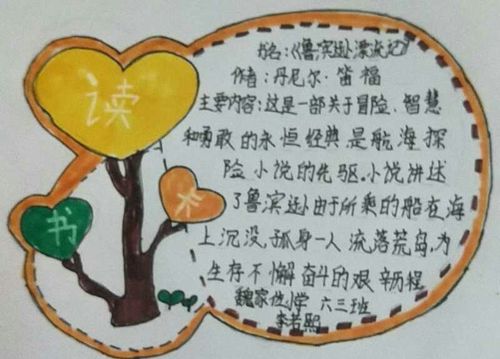 读
书
卡
书名:《鲁滨逊漂流记》
作者:丹尼尔·笛福
主要内容:这是一部关于冒险、智慧
和勇敢的永恒经典是航海探
险小说的先驱.小说讲述
了鲁滨逊由于所乘的船在海
上沉没,孤身一人流落荒岛,为
生存不懈奋斗的艰辛历程
魏家位小学 六三班
李若熙